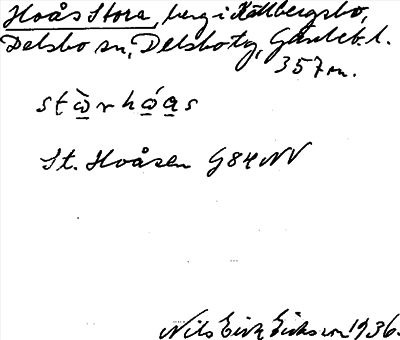 Hoås Stora, berg i Källbergsbo,
Delsbo sn, Delsbo tg, Gävleb. l.
357 m.
stὼ̱rhώ̱a̱s
St. Hoåsen G84NV
Nils Eirik Eriksson 1936.